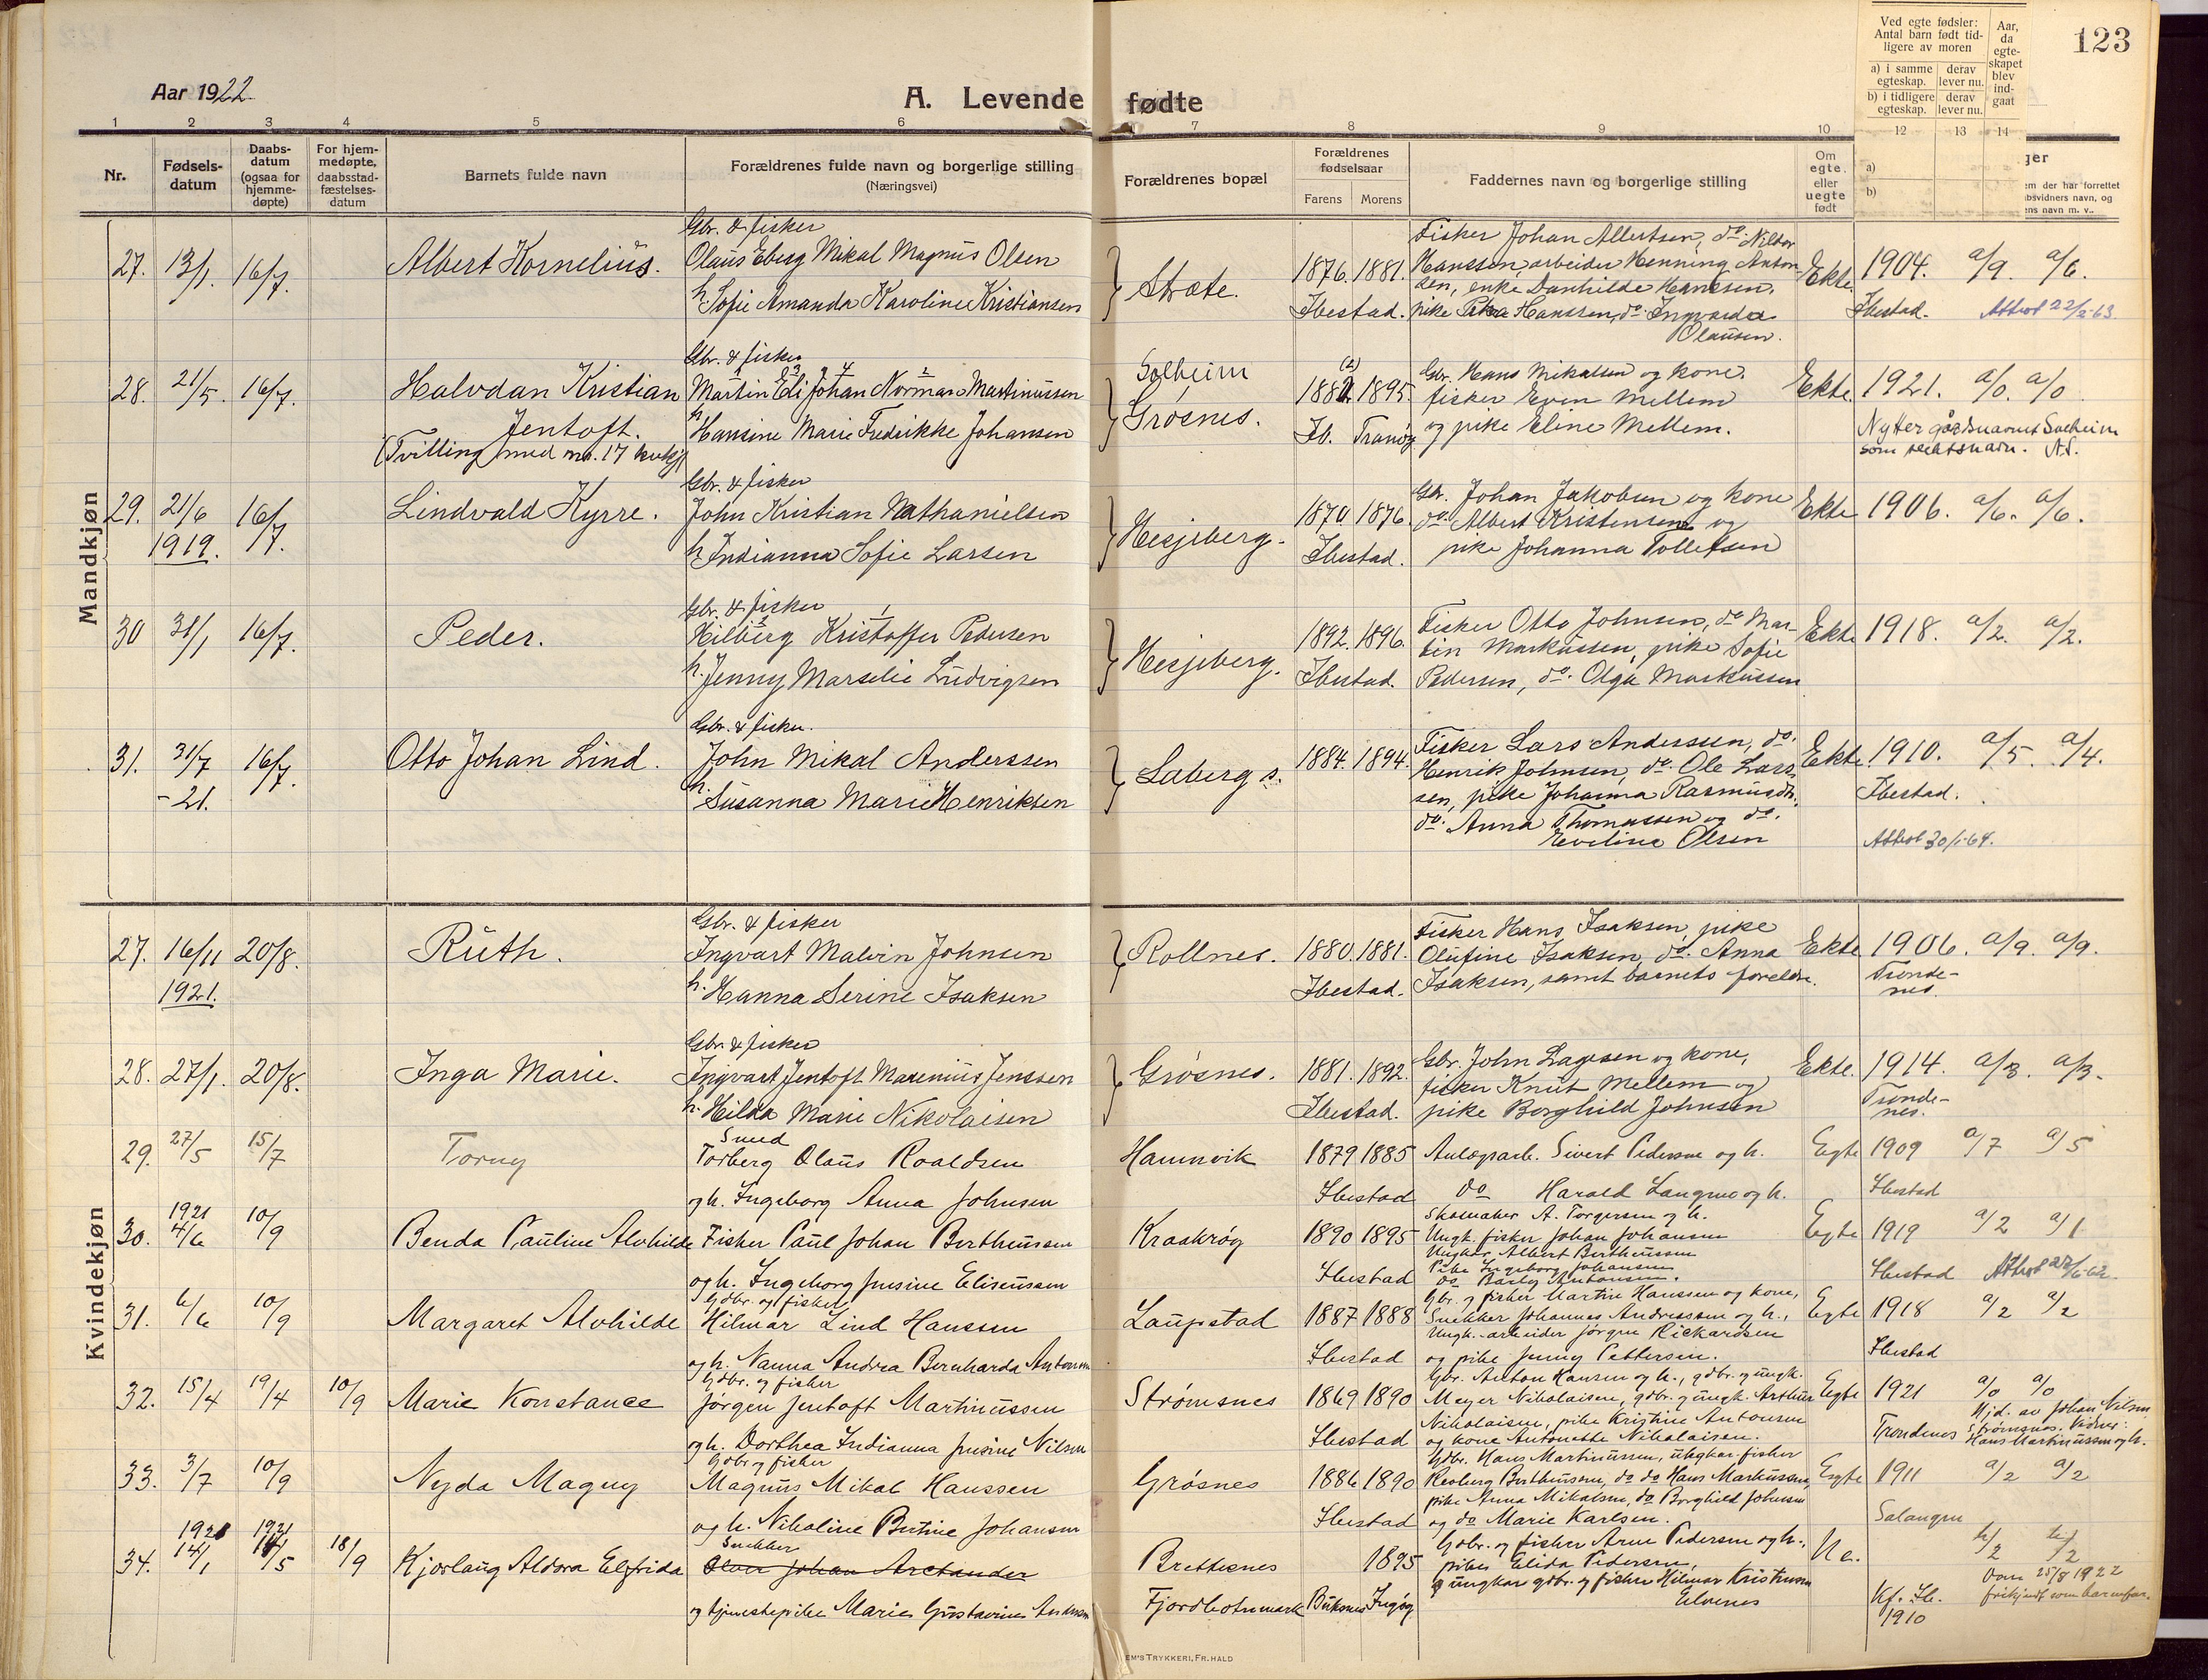 Aar 1922
A. Levende fødte
123
Ved egte fødsler: Antal barn født tidligere av moren
a) i samme egteskap. derav lever nu.
b) i tidligere egteskap. derav lever nu.
Aar, da egteskapet blev indgaat
1 2 3 4 5 6 7 8 9 10 12 13 14
Nr.
Fødselsdatum
Daabsdatum (ogsaa for hjemmedøpte)
For hjemmedøpte, daabsstadfæstelsesdatum
Barnets fulde navn
Forældrenes fulde navn og borgerlige stilling
(Næringsvei)
Forældrenes bopæl
Forældrenes fødselsaar
Farens Morens
Faddernes navn og borgerlige stilling
Om egte eller uegte født
a)
b)
ger
em der har forrettet
bsvidners navn, og
ens navn m. v.
Mandkjøn
Gbr. & fisker
27. 13/1. 16/7. Albert Kornelius. Olaus Eberg Mikal Magnus Olsen
h. Sofie Amanda Karoline Kristiansen
Stræte. 1876. 1881. Ibestad.
Fisker Johan Albertsen, do.
Hanssen, arbeider Henning Anton-
sen, enke Danhilde Hanssen,
pike Petra Hanssen, do. Ingvarda
Olausen.
Ekte. 1904. a/9. a/6.
Ibestad. Attest 22/2-63.
Gbr. & fisker
28. 21/5. 16/7. Halvdan Kristian Jentoft. Martin Eli Johan Norman Martinussen
(Tvilling med nr. 17 kvkj)
h. Hansine Marie Fredrikke Johansen
Solheim
Grøsnes. 1882 (2) 1895. Ib. Tranøy
Gbr. Hans Mikalsen og kone,
fisker Even Mellem
og pike Eline Mellem.
Ekte. 1921. a/0. a/0
Nytter gårdsnavnet Solheim
som slektsnavn. A.S.
Gbr. & fisker
29. 21/6 1919. 16/7. Lindvald Kyrre. John Kristian Nathanielsen
h. Indianna Sofie Larsen
Hesjeberg. 1870 1876. Ibestad.
Gbr. Johan Jakobsen og kone
do. Albert Kristensen og
pike Johanna Tollefsen
Ekte 1906. a/6. a/6.
Gbr. & fisker
30 31/1 16/7. Peder. Hilberg Kristoffer Pedersen
h. Jenny Marselie Ludvigsen
Hesjeberg. 1892. 1896. Ibestad.
Fisker Otto Johnsen, do Mar-
tin Markussen, pike Sofie
Pedersen, do. Olga Markussen
Ekte 1918. a/2. a/2.
Gbr. & fisker.
31. 31/7 -21. 16/7. Otto Johan Lind. John Mikal Anderssen
h. Susanna Marie Henriksen
Laberg s. 1884. 1894.
Fisker Lars Anderssen, do.
Henrik Johnsen, do. Ole Lars-
sen, pike Johanna Rasmusdtr.
do. Anna Thomassen og do.
Eveline Olsen
Ekte 1910. a/5. a/4.
Ibestad.
Attest 30/1-64.
Kvindekjøn
Gbr. & fisker
27. 16/11 1921. 20/8. Ruth. Ingvart Malvin Johnsen
h. Hanna Serine Isaksen
Rollnes. 1880. 1881. Ibestad.
Fisker Hans Isaksen, pike
Olufine Isaksen, do. Anna
Isaksen, samt barnets foreldre.
Ekte 1906. a/9. a/9.
Tronde-
nes.
Gbr. & fisker
28. 27/1. 20/8. Inga Marie. Ingvart Jentoft Marenius Jenssen
h. Hilda Marie Nikolaisen
Grøsnes. 1881. 1892. Ibestad.
Gbr. John Lagesen og kone,
fisker Knut Mellem og
pike Borghild Johnsen
Ekte. 1914. a/3. a/3.
Tronde-
nes.
Smed
29. 27/5 15/7 Torny Torberg Olaus Roaldsen
og h. Ingeborg Anna Johnsen
Hamnvik 1879 1885 Ibestad
Anlegsarb. Sivert Pedersen og h.
do Harald Langmo og h.
Skomaker A. Torgersen og h.
Egte 1909 a/7 a/5
Ibestad
30. 1921 4/6 10/9 Benda Pauline Alvhilde Fisker Paul Johan Bertheussen
og h. Ingeborg Jensine Eliseussen
Kraakrøg 1890 1895 Ibestad
Ungk. fisker Johan Johansen
Ungkar Albert Bertheussen
Pike Ingeborg Johansen
do Antonsen.
Egte 1919 a/2 a/1
Ibestad Attest
Gdbr. og fisker
31. 6/6 10/9 Margaret Alvhilde Hilmar Lind Hanssen
og h. Nanna Andrea Bernharda Antonsen
Laupstad 1887 1888 Ibestad
Gbr. og fisker Martin Hanssen og kone,
Snekker Johannes Andreassen og h.,
Ungk.-arbeider Jørgen Rickardsen
og pike Jenny Pettersen.
Egte 1918 a/2 a/2
Ibestad
Gdbr. og fisker
32. 15/4 19/4 10/9 Marie Konstance Jørgen Jentoft Martinussen
og h. Dorthea Indianna Jensine Nilsen
Strømsnes 1869 1890 Ibestad
Gbr. Anton Hansen og h., gdbr. og ungk.
Meyer Nikolaisen, gdbr. og ungk. Arthur
Nikolaisen, pike Kristine Antonsen
og kone Antonette Nikolaisen.
Egte 1921 a/0 a/0
Trondenes Hjd. av Johan Nilsen
Strømsnes. Vidner:
Hans Martinussen og h.
Gdbr. og fisker
33. 3/7 10/9 Nyda Magny Magnus Mikal Hanssen
og h. Nikoline Bertine Johansen
Grøsnes 1886 1890 Ibestad
Gdbr. Hans Martinussen, ungkar fisker
Bertheussen, do do Hans Markussen,
pike Anna Mikalsen, do Borghild Johnsen
og do Marie Karlsen.
Egte 1911 a/2 a/2
Salangen
Snekker
34. 1921 14/1 1921 14/5 18/9 Kjorlaug Aldora Elfrida Olver Johan Arctander
og tjenestepike Marie Gustavine Andersen
Brettesnes 1895
Fjordbotnmark Buksnes Ingøy
Gdbr. og fisker Arne Pedersen og h.,
pike Elida Pedersen,
og ungkar gdbr. og fisker Hilmar Kristensen
Elvenes
Ue. b/2 b/2
Dom 25/8 1922
frikjendt som barnefar.
Kf. Ib.
1910
EM'S TRYKKERI, FR. HALD